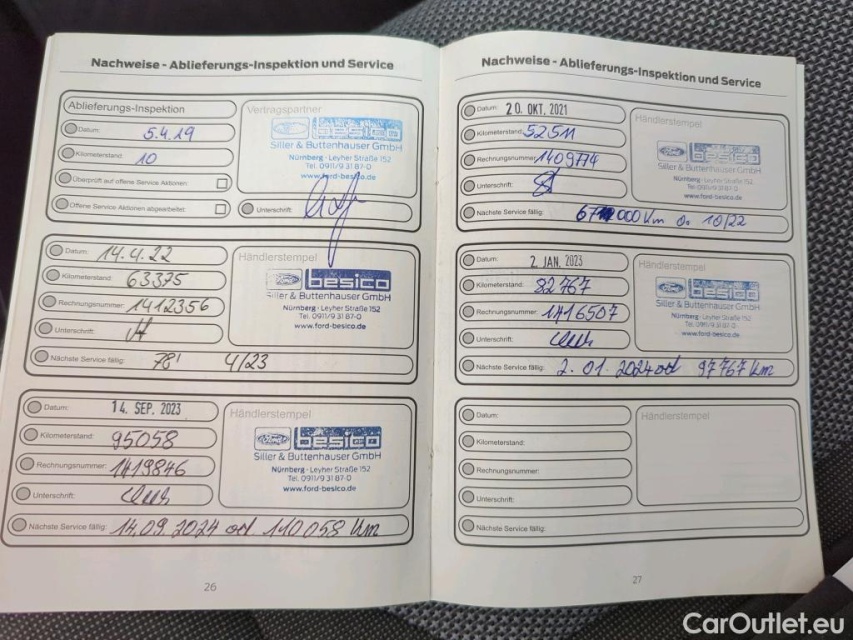 Nachweise - Ablieferungs-Inspektion und Service
Ablieferungs-Inspektion
Datum: 5.4.19
Kilometerstand: 10
Überprüft auf offene Service Aktionen:
Offene Service Aktionen abgearbeitet:
Vertragspartner
besico
Siller & Buttenhauser GmbH
Nürnberg · Leyher Straße 152
Tel. 0911/9 31 87-0
www.ford-besico.de
Unterschrift:
Datum: 14.4.22
Kilometerstand: 63375
Rechnungsnummer: 1412356
Unterschrift:
Nächste Service fällig: 78' 4/23
Händlerstempel
Ford besico
Siller & Buttenhauser GmbH
Nürnberg · Leyher Straße 152
Tel. 0911/9 31 87-0
www.ford-besico.de
Datum: 14. SEP. 2023
Kilometerstand: 95058
Rechnungsnummer: 1419846
Unterschrift:
Nächste Service fällig: 14.09.2024 od 110058 Km
Händlerstempel
Ford besico
Siller & Buttenhauser GmbH
Nürnberg · Leyher Straße 152
Tel. 0911/9 31 87-0
www.ford-besico.de
26
Nachweise - Ablieferungs-Inspektion und Service
Datum: 20. OKT. 2021
Kilometerstand: 52511
Rechnungsnummer: 1409774
Unterschrift:
Nächste Service fällig: 000 Km o. 10/22
Händlerstempel
besico
Siller & Buttenhauser GmbH
Nürnberg · Leyher Straße 152
Tel. 0911/9 31 87-0
www.ford-besico.de
Datum: 2. JAN. 2023
Kilometerstand: 82767
Rechnungsnummer: 1416507
Unterschrift:
Nächste Service fällig: 2.01.2024 od 97767 Km
Händlerstempel
besico
Siller & Buttenhauser GmbH
Nürnberg · Leyher Straße 152
Tel. 0911/9 31 87-0
www.ford-besico.de
Datum:
Kilometerstand:
Rechnungsnummer:
Unterschrift:
Nächste Service fällig:
Händlerstempel
27
CarOutlet.eu